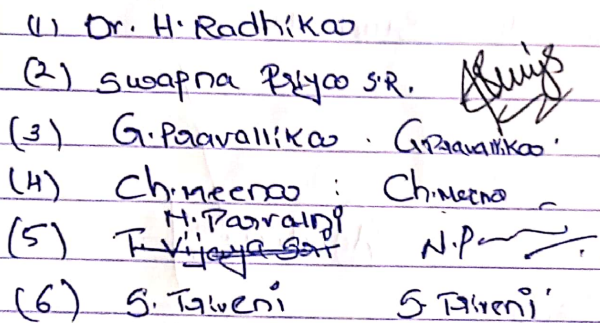 (1) Dr. H. Radhikaa
(2) Swapna Priyaa S.R.
(3) G. Paavallikaa . G.Paavallikaa
(4) Ch. meenaa : Ch. Meena
(5) N. Parvathi N.P
T. Vijaya Sai
(6) S. Triveni S Triveni